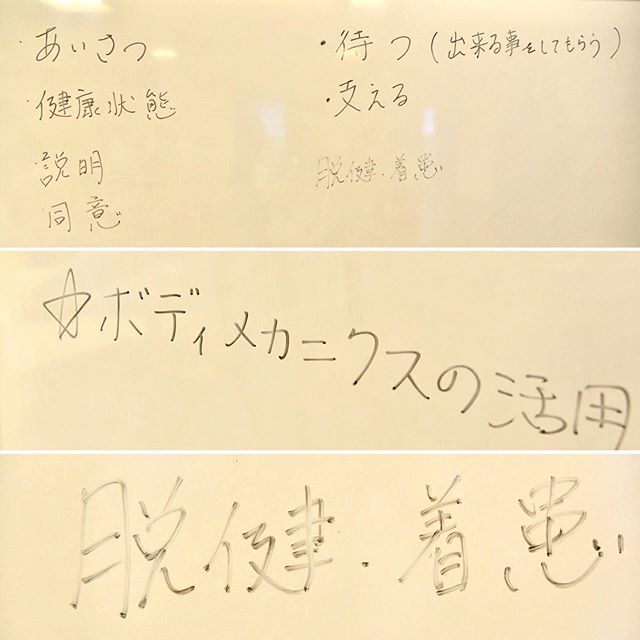 ・あいさつ
・健康状態
説明
同意
・待つ(出来る事をしてもらう)
・支える
脱健・着患
☆ボディメカニクスの活用
脱健・着患